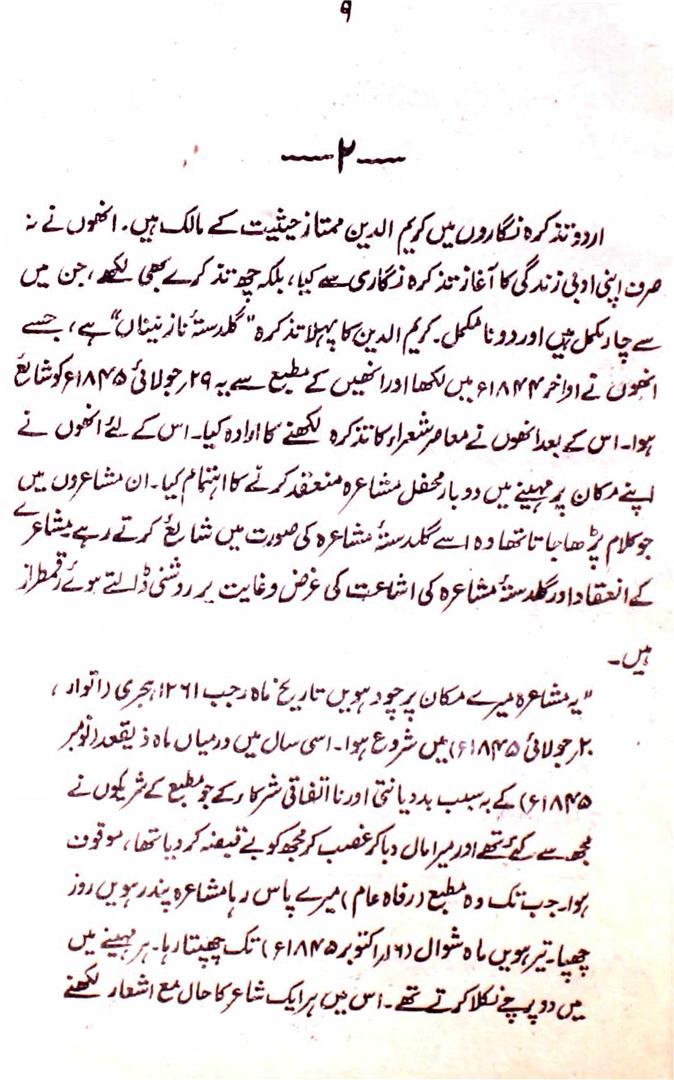 ۹
۲
اردو تذکرہ نگاروں میں کریم الدین ممتاز حیثیت کے مالک ہیں۔ انھوں نے نہ
صرف اپنی ادبی زندگی کا آغاز تذکرہ نگاری سے کیا، بلکہ چھ تذکرے بھی لکھے، جن میں
سے چار مکمل ہیں اور دو نا مکمل۔ کریم الدین کا پہلا تذکرہ "گلدستۂ نازنیناں" ہے، جسے
انھوں نے اواخر ۱۸۴۴ء میں لکھا اور انھیں کے مطبع سے یہ ۲۹؍جولائی ۱۸۴۵ء کو شائع
ہوا۔ اس کے بعد انھوں نے معاصر شعراء کا تذکرہ لکھنے کا ارادہ کیا۔ اس کے لئے انھوں نے
اپنے مکان پر مہینے میں دو بار محفل مشاعرہ منعقد کرنے کا اہتمام کیا۔ ان مشاعروں میں
جو کلام پڑھا جاتا تھا وہ اسے گلدستۂ مشاعرہ کی صورت میں شایع کرتے رہے مشاعرے
کے انعقاد اور گلدستۂ مشاعرہ کی اشاعت کی غرض و غایت پر روشنی ڈالتے ہوئے رقمطراز
ہیں۔
"یہ مشاعرہ میرے مکان پر چودہویں تاریخ ماہ رجب ۱۲۶۱ ہجری (اتوار،
۲۰؍جولائی ۱۸۴۵ء) میں شروع ہوا۔ اسی سال میں درمیاں ماہ ذیقعد (نومبر
۱۸۴۵ء) کے بہ سبب بد دیانتی اور نا اتفاقی شرکار کے جو مطبع کے شریکوں نے
مجھ سے کئے تھے اور میرا مال دبا کر غصب کر مجھ کو بے قبضہ کر دیا تھا، موقوف
ہوا۔ جب تک وہ مطبع (رفاہ عام) میرے پاس رہا مشاعرہ پندرہویں روز
چھپا۔ تیرہویں ماہ شوال (۱۶؍اکتوبر ۱۸۴۵ء) تک چھپتا رہا۔ ہر مہینے میں
میں دو پرچے نکلا کرتے تھے۔ اس میں ہر ایک شاعر کا حال مع اشعار لکھنے